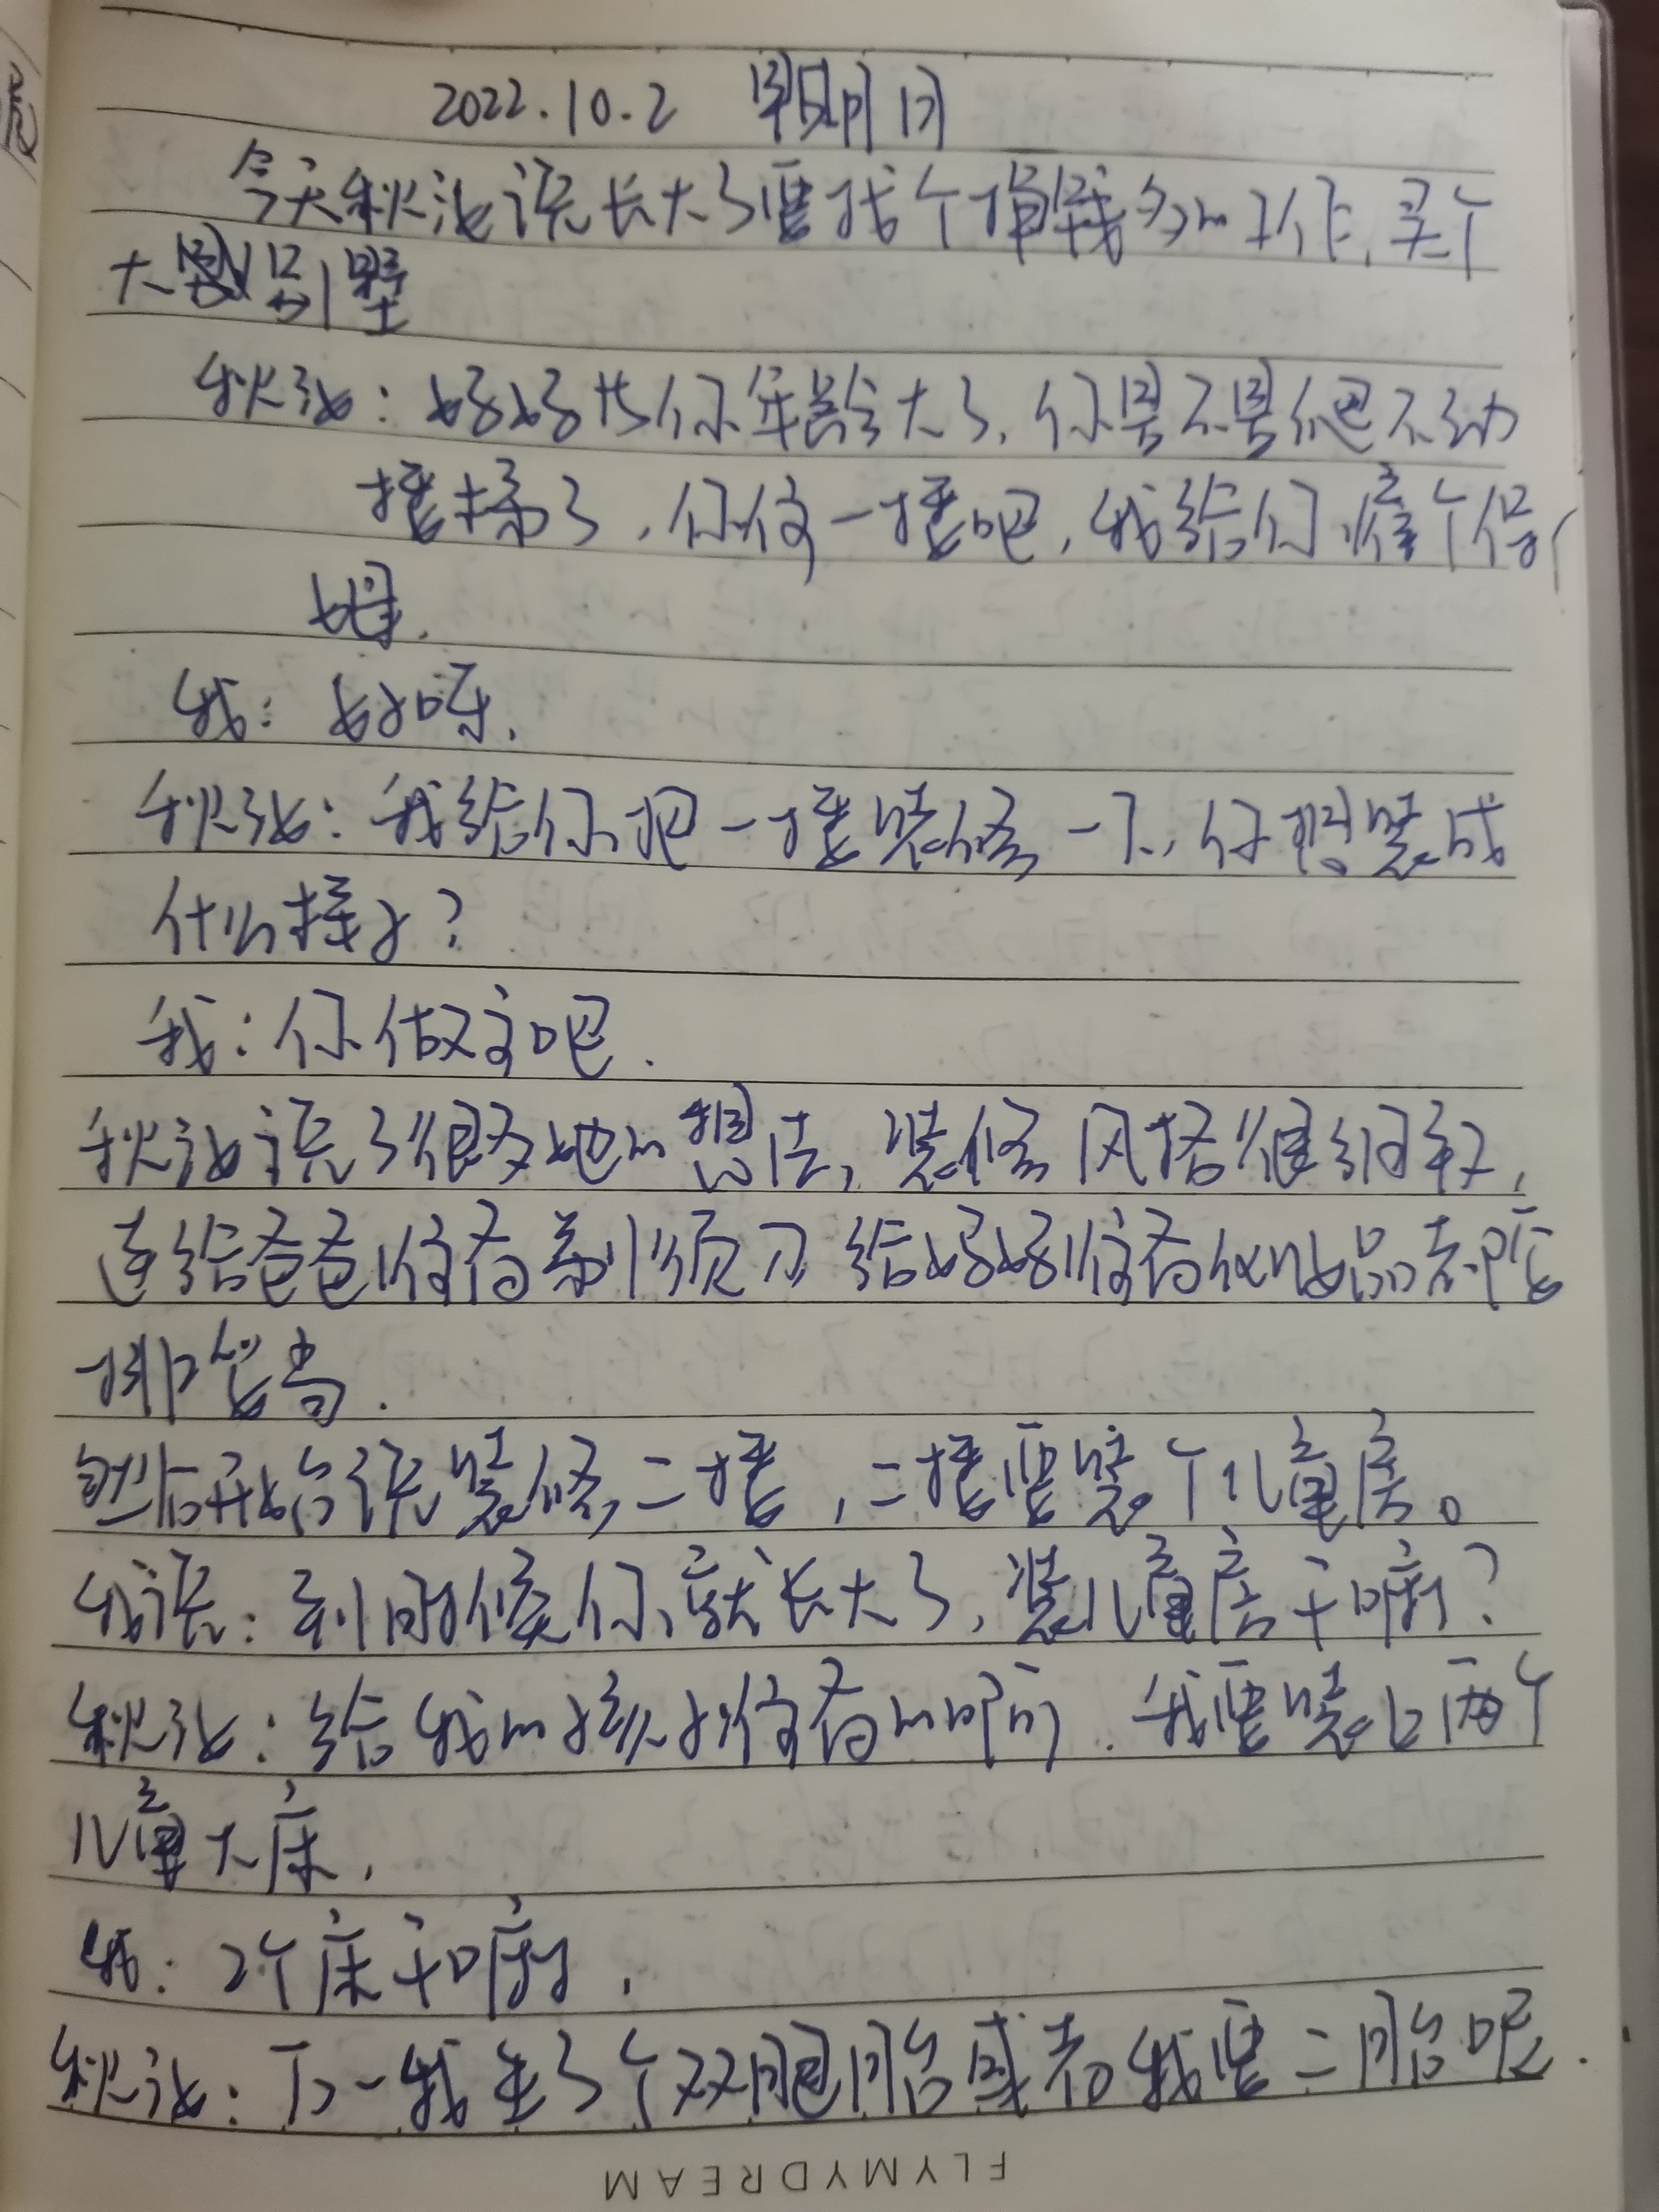 2022.10.2 星期日
今天秋池说长大了要找个赚钱多的工作,买个
大别墅
秋池:妈妈比你年龄大了,你是不是爬不动
楼梯了,你住一楼吧,我给你雇个保
姆.
我:好呀.
秋池:我给你把一楼装修一下,你想装成
什么样子?
我:你做主吧.
秋池说了很多她的想法,装修风格很细致,
连给爸爸准备剃须刀 给妈妈准备化妆品都
然后开始说装修二楼,二楼要装个儿童房。
我说:到时候你就长大了,装儿童房干嘛?
秋池:给我的孩子准备的啊.我要装上两个
儿童大床,
我:2个床干嘛,
秋池:万一我生了个双胞胎或者我要二胎呢.
FLYMYDREAM